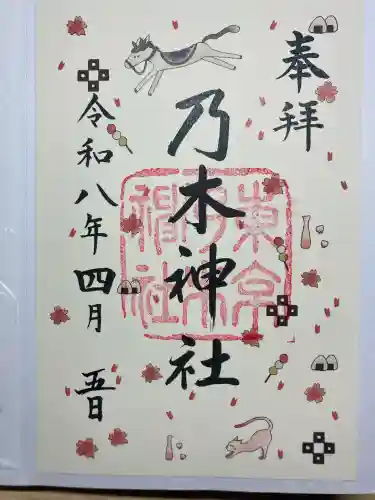 奉拝
乃木神社
令和八年四月五日
東京乃木神社